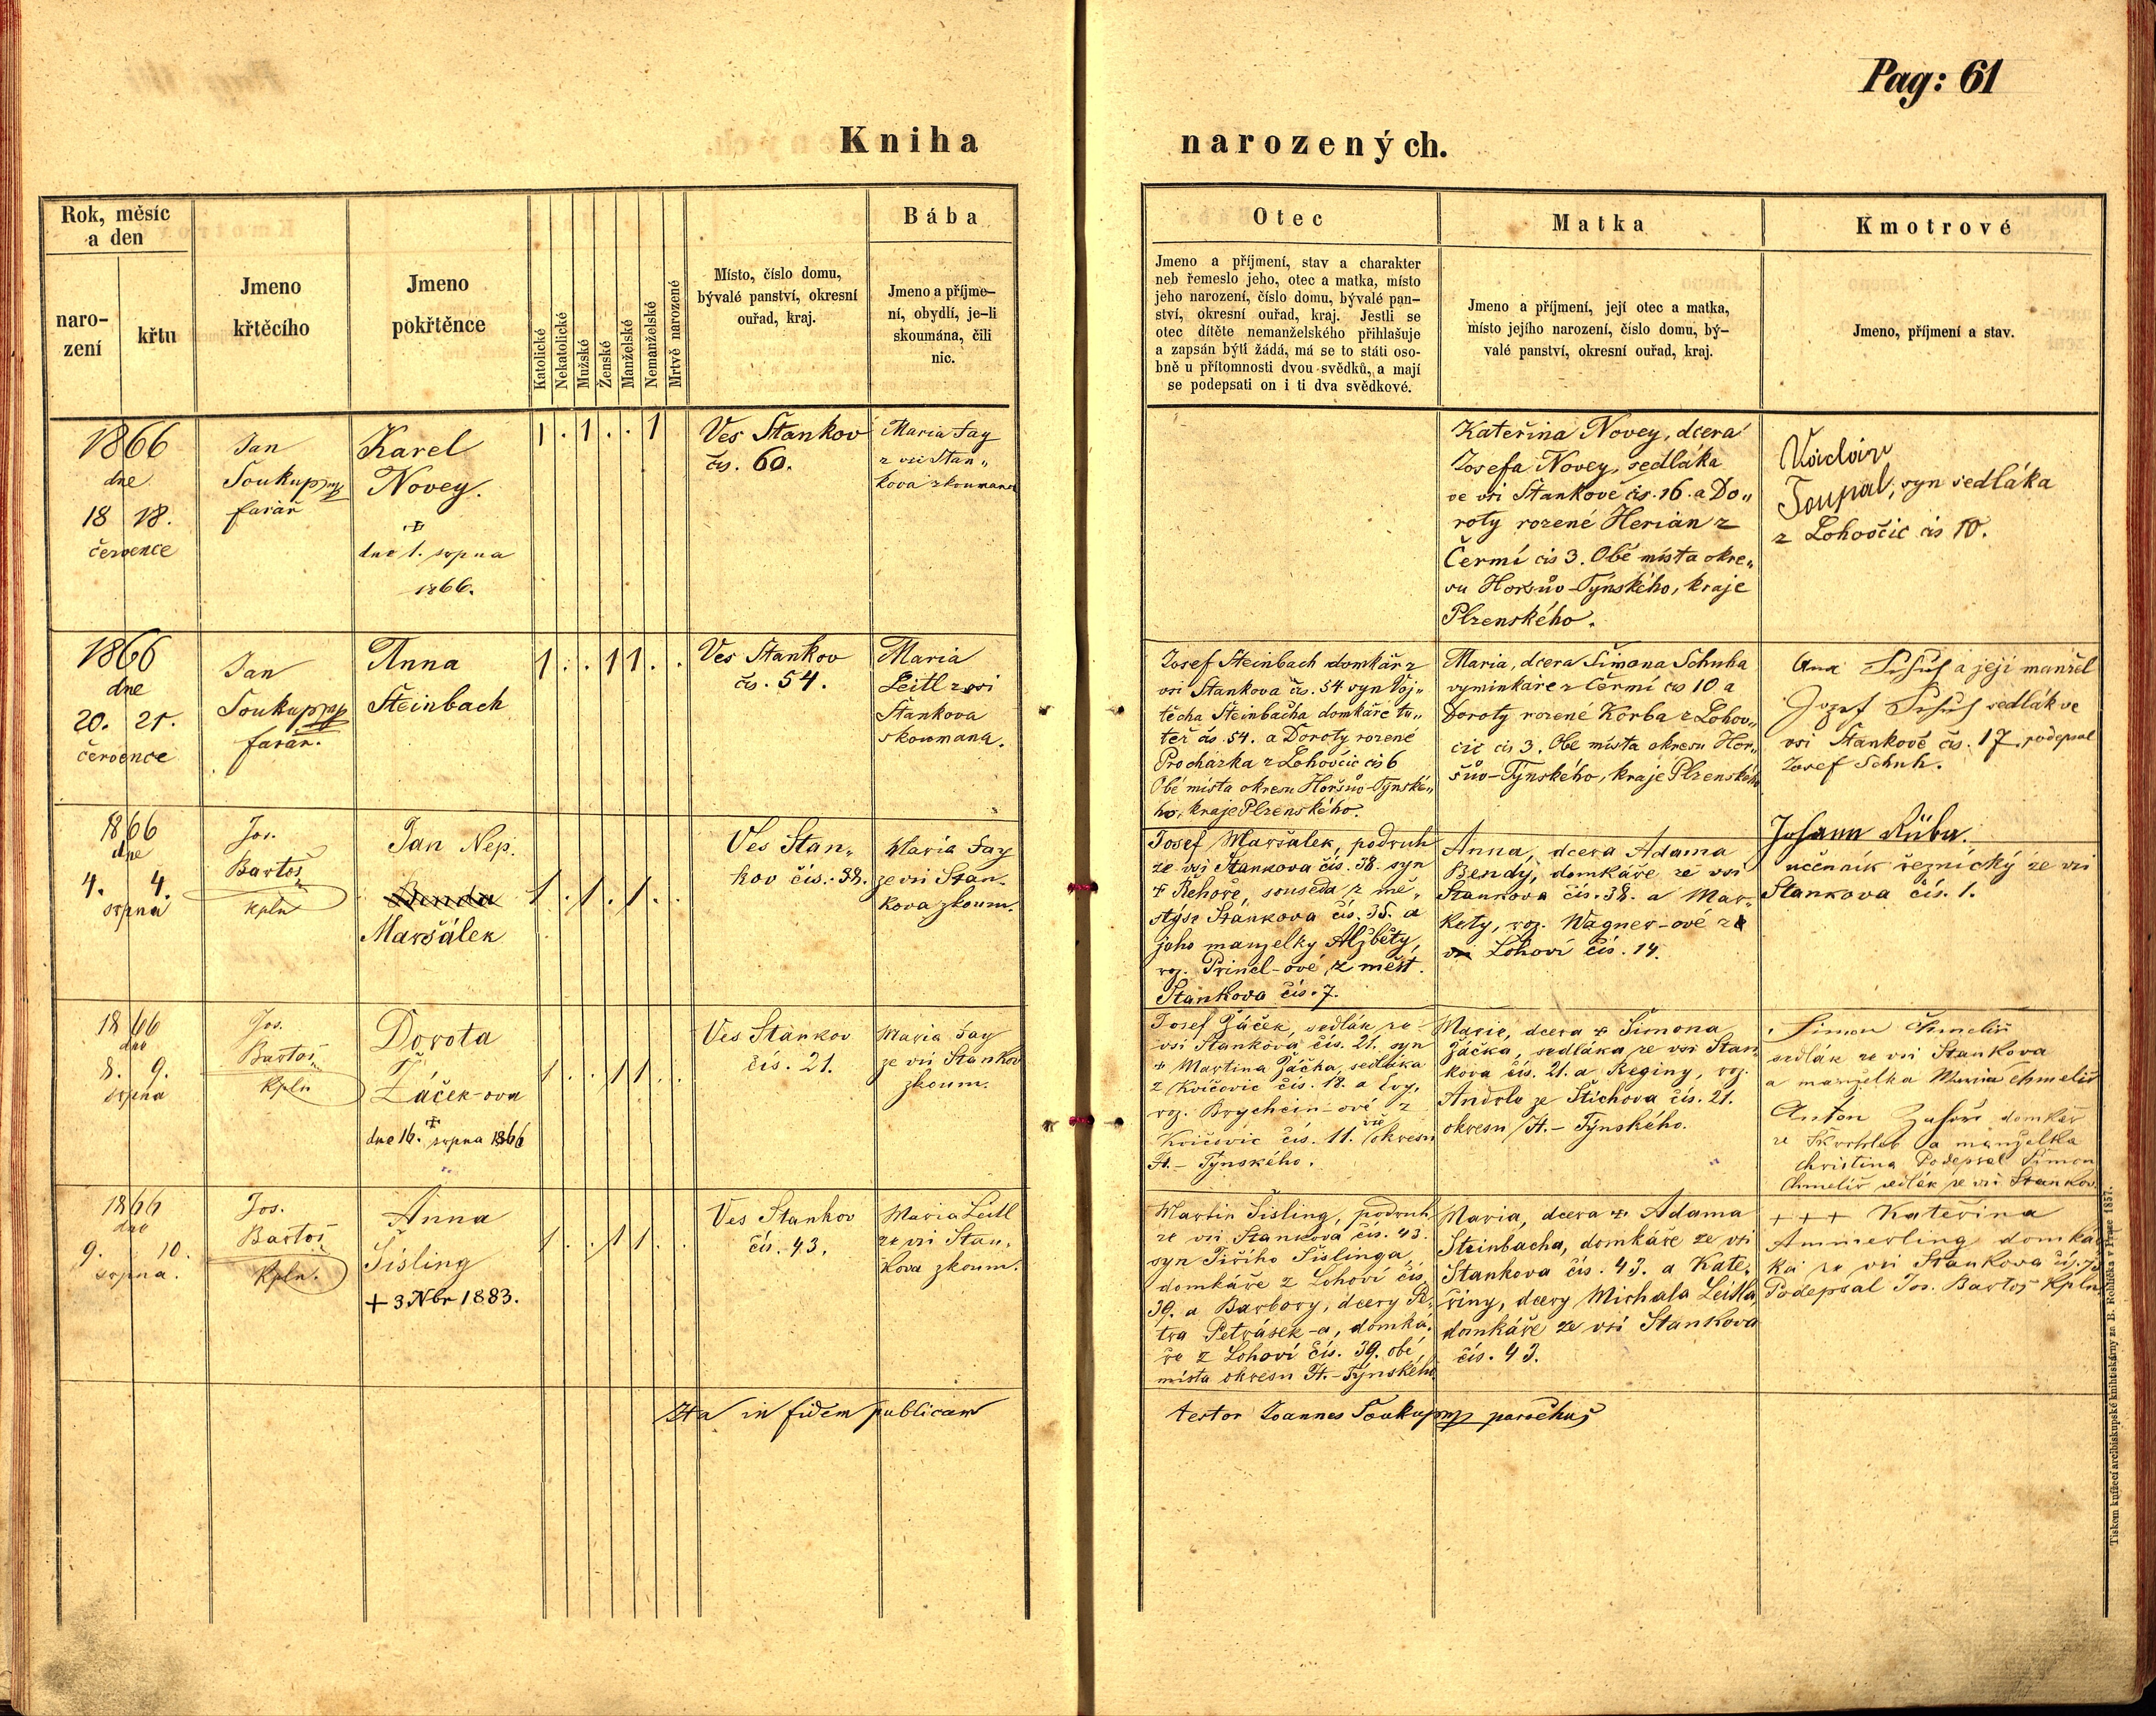 Pag: 61
Kniha narozených.
Rok, měsíc
a den
naro-
zení
křtu
Jmeno
křtěcího
Jmeno
pokřtěnce
Katolické
Nekatolické
Mužské
Ženské
Manželské
Nemanželské
Mrtvě narozené
Místo, číslo domu,
bývalé panství, okresní
ouřad, kraj.
Bába
Jmeno a příjme-
ní, obydlí, je-li
skoumána, čili
nic.
Otec
Jmeno a příjmení, stav a charakter
neb řemeslo jeho, otec a matka, místo
jeho narození, číslo domu, bývalé pan-
ství, okresní ouřad, kraj. Jestli se
otec dítěte nemanželského přihlašuje
a zapsán býti žádá, má se to státi oso-
bně u přítomnosti dvou svědků, a mají
se podepsati on i ti dva svědkové.
Matka
Jmeno a příjmení, její otec a matka,
místo jejího narození, číslo domu, bý-
valé panství, okresní ouřad, kraj.
Kmotrové
Jmeno, příjmení a stav.
1866
dne
18 18.
července
Jan
Soukup
farář
Karel
Novey.
dne 1. srpna
1866.
1 . 1 . . 1
Ves Stankov
čis. 60.
Maria Fay
z vsi Stan„
kova zkoumana
Kateřina Novey, dcera
Josefa Novey, sedláka
ve vsi Stankově čis. 16. a Do„
roty rozené Herian z
Čermí čis 3. Obě místa okre„
su Horšův-Týnského, kraje
Plzenského.
Toupal, syn sedláka
z Lohovčic čis 10.
1866
dne
20. 21.
července
Jan
Soukup
farář.
Anna
Šteinbach
1 . . 1 1 . .
Ves Stankov
čis. 54.
Maria
Leitl z vsi
Stankova
skoumana.
Josef Steinbach domkář z
vsi Stankova čis. 54 syn Voj„
těcha Šteinbacha domkáře tu„
též čis. 54. a Doroty rozené
Prochazka z Lohovčic čis 6
Obě místa okresu Horšův-Tynské„
ho, kraje Plzenského.
Maria, dcera Šimona Schuha
vyminkáře z Čermí čis 10 a
Doroty rozené Korba z Lohov„
čic čis 3. Obě místa okresu Hor„
šův-Týnského, kraje Plzenského
Ana Schuh a její manžel
Jozef Schuh sedlák ve
vsi Stankově čis. 17. podepsal
Josef Schuh.
1866
dne
4. 4.
srpna
Jos.
Bartoš
Kpln
Jan Nep.
Benda
Maršálek
1 . 1 . 1 . .
Ves Stan„
kov čís. 38.
Maria Fay
ze vsi Stan-
kova zkoum.
Josef Maršalek, podruh
ze vsi Stankova čís. 38. syn
+ Řehoře, souseda z mě„
styse Stankova čís. 35. a
jeho manželky Alžběty,
roz. Princl-ové z měst.
Stankova čís. 7.
Anna, dcera Adama
Bendy, domkáře ze vsi
Stankova čís. 38. a Mar-
kety, roz. Wagner-ové z
Lohoví čís. 14.
Johann
učenník řeznický ze vsi
Stankova čís. 1.
1866
dne
8. 9.
srpna
Jos.
Bartoš
Kpln
Dorota
Žáček-ova
dne 16. srpna 1866
1 . . 1 1 . .
Ves Stankov
čís. 21.
Maria Fay
ze vsi Stankov
zkoum.
Josef Žáček, sedlák ze
vsi Stankova čís. 21. syn
+ Martina Žáčka, sedláka
z Kvičovic čís. 18. a Evy,
roz. Brychcin-ové z
Kvičovic čís. 11. vše okresu
H.- Týnského.
Marie, dcera + Šimona
Žáčka, sedláka ze vsi Stan-
kova čís. 21. a Reginy, roz.
Andrle ze Štichova čís. 21.
okresu H.- Týnského.
Šimon Chmelíř
sedlák ze vsi Stankova
a manželka Maria Chmelíř
Anton domkář
ze a manželka
Christina Podepsal Šimon
Chmelíř sedlák ze vsi Stankov.
1866
dne
9. 10.
srpna.
Jos.
Bartoš
Kpln.
Anna
Šisling
+ 3 Nbr 1883.
1 . . 1 1 . .
Ves Stankov
čís. 43.
Maria Leitl
ze vsi Stan-
kova zkoum.
Martin Šisling, podruh
ze vsi Stankova čís. 43.
syn Jiřího Šislinga,
domkáře z Lohoví čís.
39. a Barbory, dcery Pe-
tra Petrásek-a, domká-
ře z Lohoví čís. 39. obě
místa okresu H.-Týnského
Maria, dcera + Adama
Steinbacha, domkáře ze vsi
Stankova čís. 43. a Kate-
řiny, dcery Michala Leitla,
domkáře ze vsi Stankova
čís. 43.
+ + + Kateřina
Ammerling domkář
ka ze vsi Stankova čís.
Podepsal Jos. Bartoš Kpln
Ita in fidem publicam testor Joannes Soukup parochus
Tiskem knížecí arcibiskupské knihtiskárny za B. Rohlíčka v Praze 1857.